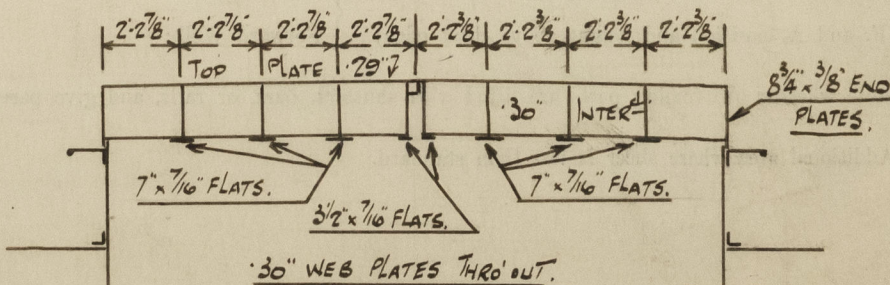 2'-2 7/8" 2'-2 7/8" 2'-2 7/8" 2'-2 7/8" 2'-2 3/8" 2'-2 3/8" 2'-2 3/8" 2'-2 3/8"
TOP PLATE ·29"
·30" INTERcl.
8 3/4" x 3/8" END
PLATES.
7" x 7/16" FLATS.
3 1/2" x 7/16" FLATS.
7" x 7/16" FLATS.
·30" WEB PLATES THRO' OUT.